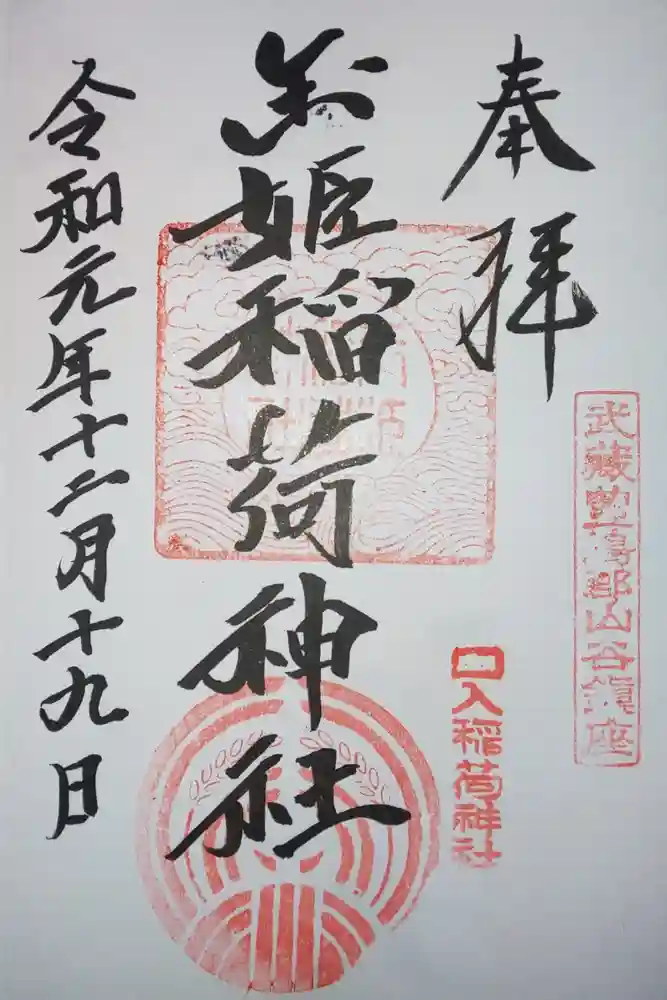 奉拝
武藏豊島郡山谷鎮座
玉姫稲荷神社
口入稲荷神社
令和元年十二月十九日